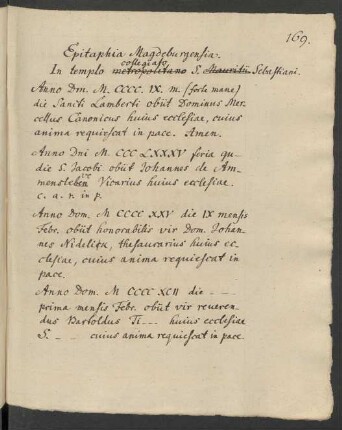 169.
Epitaphia Magdeburgensia.
collegiato
In templo metropolitano S. Mauritii Sebastiani.
Anno Dm. M. CCCC. IX. m. (forte mane)
die Sancti Lamberti obiit Dominus Mer-
cellus Canonicus huius ecclesiae, cuius
anima requiescat in pace. Amen.
Anno Dni M. CCC LXXXV feria qu-
die S. Jacobi obiit Johannes de Am-
mensleben Vicarius huius ecclesiae.
c. a. r. in p.
Anno Dom. M CCCC XXV die IX mensis
Febr. obiit honorabilis vir Dom. Johan-
nes Nidelitz, thesaurarius huius ec-
clesiae, cuius anima requiescat in
pace.
Anno Dom. M CCCC XCII die - - -
prima mensis Febr. obiit vir reveren-
dus Bartoldus Ti - - - huius ecclesiae
S. - - - cuius anima requiescat in pace